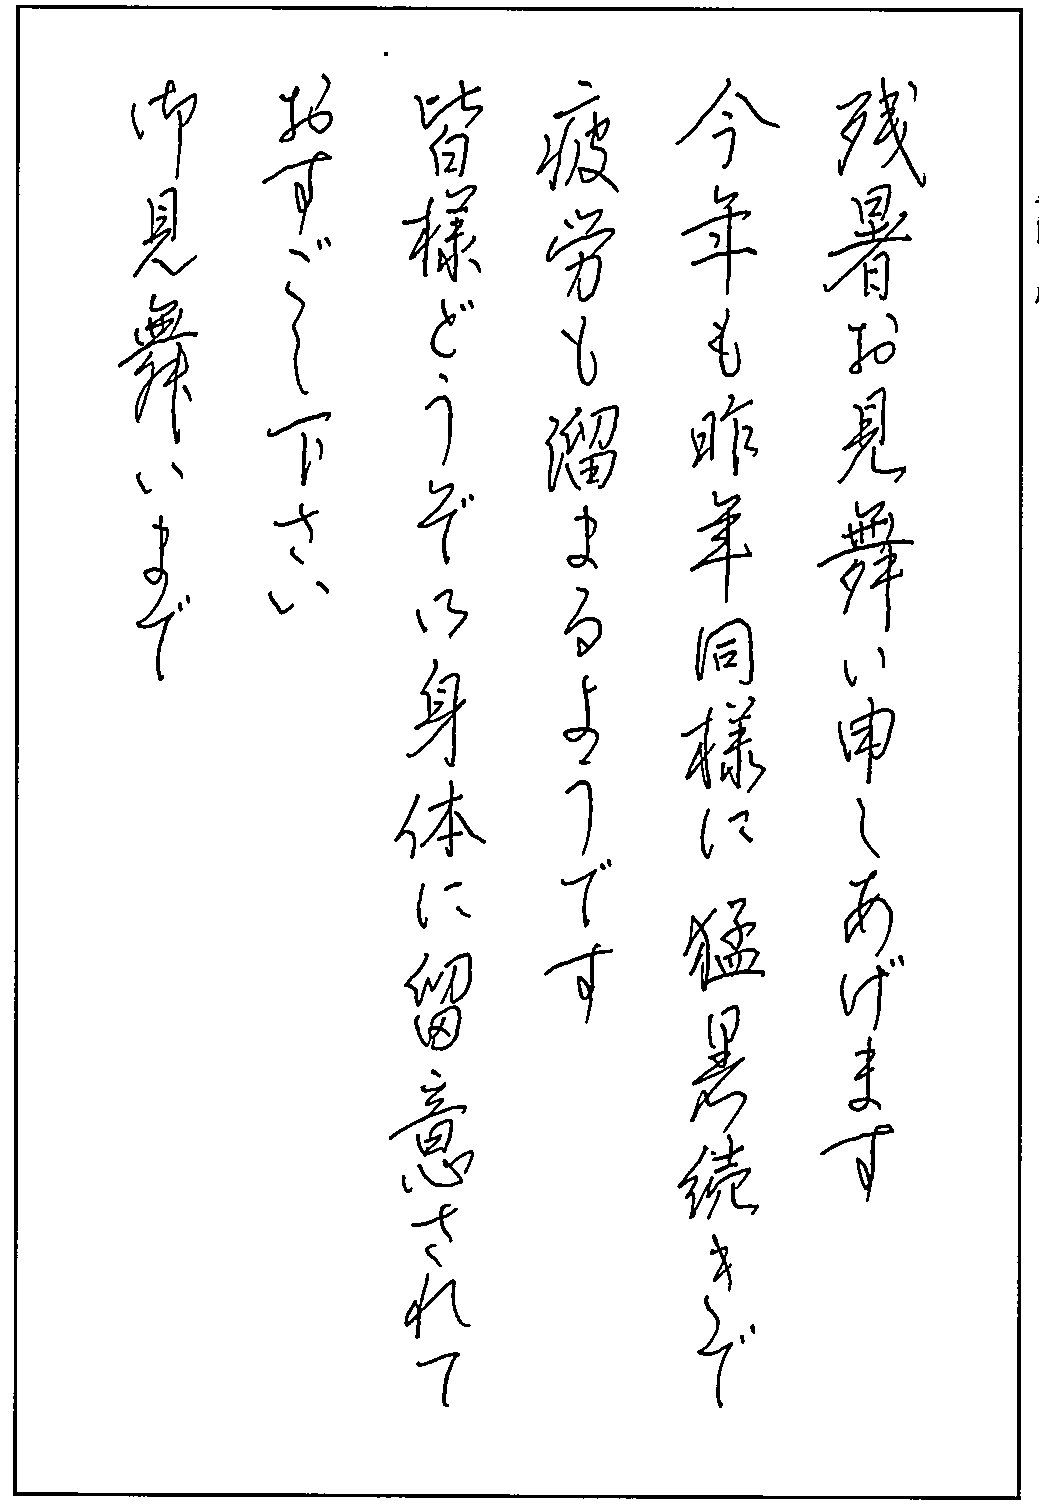 残暑お見舞い申しあげます
今年も昨年同様に猛暑続きで
疲労も溜まるようです
皆様どうぞ御身体に留意されて
おすごし下さい
御見舞いまで